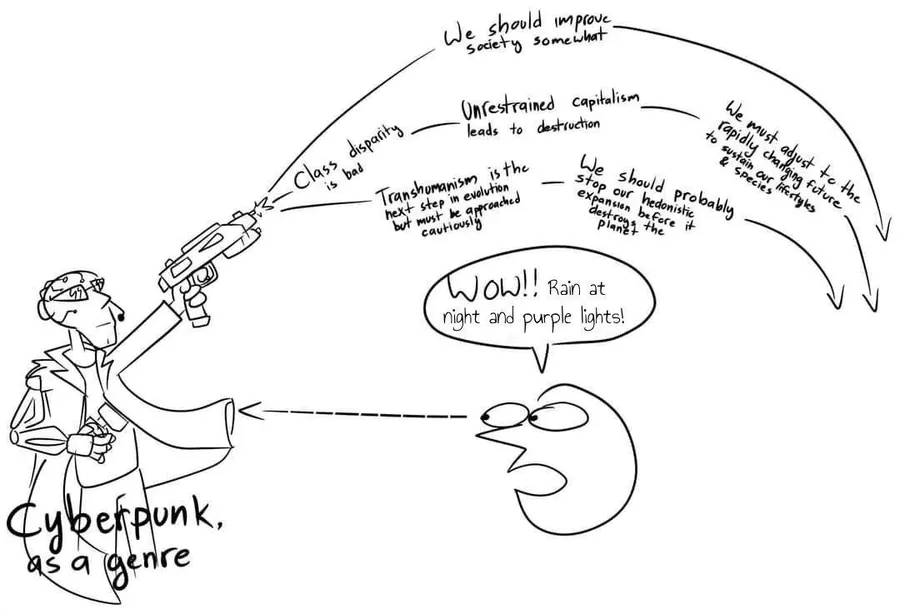 We should improve
society somewhat
Unrestrained capitalism
leads to destruction
Class disparity
is bad
We must adjust to the
rapidly changing future
to sustain our lifestyles
& species
Transhumanism is the
next step in evolution
but must be approached
cautiously
We should probably
stop our hedonistic
expansion before it
destroys the
planet
WOW!! Rain at
night and purple lights!
Cyberpunk,
as a genre